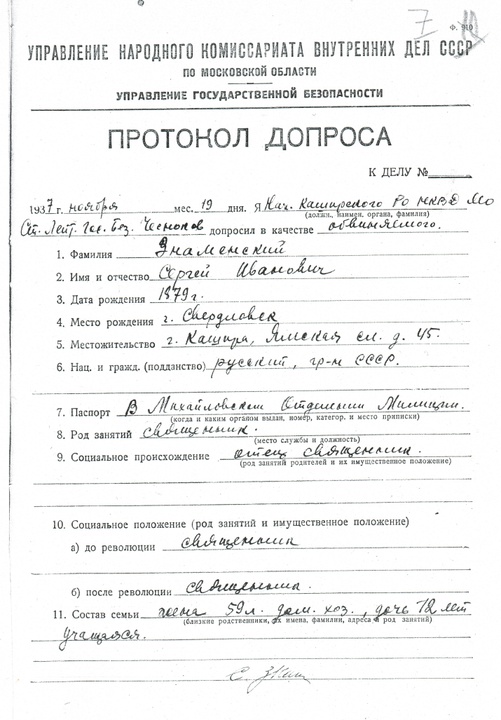 7
Ф. №10
УПРАВЛЕНИЕ НАРОДНОГО КОМИССАРИАТА ВНУТРЕННИХ ДЕЛ СССР
ПО МОСКОВСКОЙ ОБЛАСТИ
УПРАВЛЕНИЕ ГОСУДАРСТВЕННОЙ БЕЗОПАСНОСТИ
ПРОТОКОЛ ДОПРОСА
К ДЕЛУ №
1937 г. ноября мес. 19 дня. Я Нач. Каширского РО НКВД МО
(должн., наимен. органа, фамилия)
Ст. Лейт. Гос. Без. Чесноков допросил в качестве обвиняемого.
1. Фамилия Знаменский
2. Имя и отчество Сергей Иванович
3. Дата рождения 1879 г.
4. Место рождения г. Свердловск
5. Местожительство г. Кашира, Ямская сл. д. 45.
6. Нац. и гражд. (подданство) русский, гр-н СССР.
7. Паспорт В Михайловском Отделении Милиции.
(когда и каким органом выдан, номер, категор. и место приписки)
8. Род занятий священник.
(место службы и должность)
9. Социальное происхождение отец священник.
(род занятий родителей и их имущественное положение)
10. Социальное положение (род занятий и имущественное положение)
а) до революции священник
б) после революции священник.
11. Состав семьи жена 59 л. дом. хоз., дочь 12 лет
(близкие родственники, их имена, фамилии, адреса и род занятий)
учащаяся.